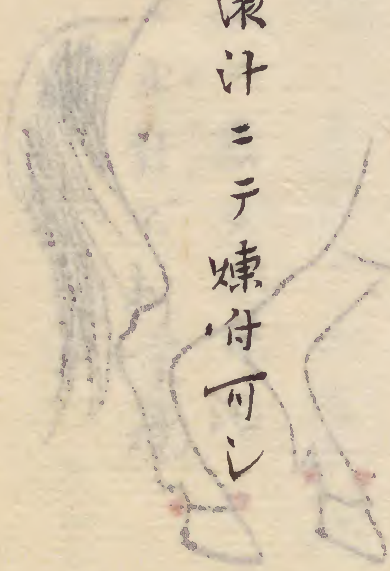 汁ニテ煉付可し